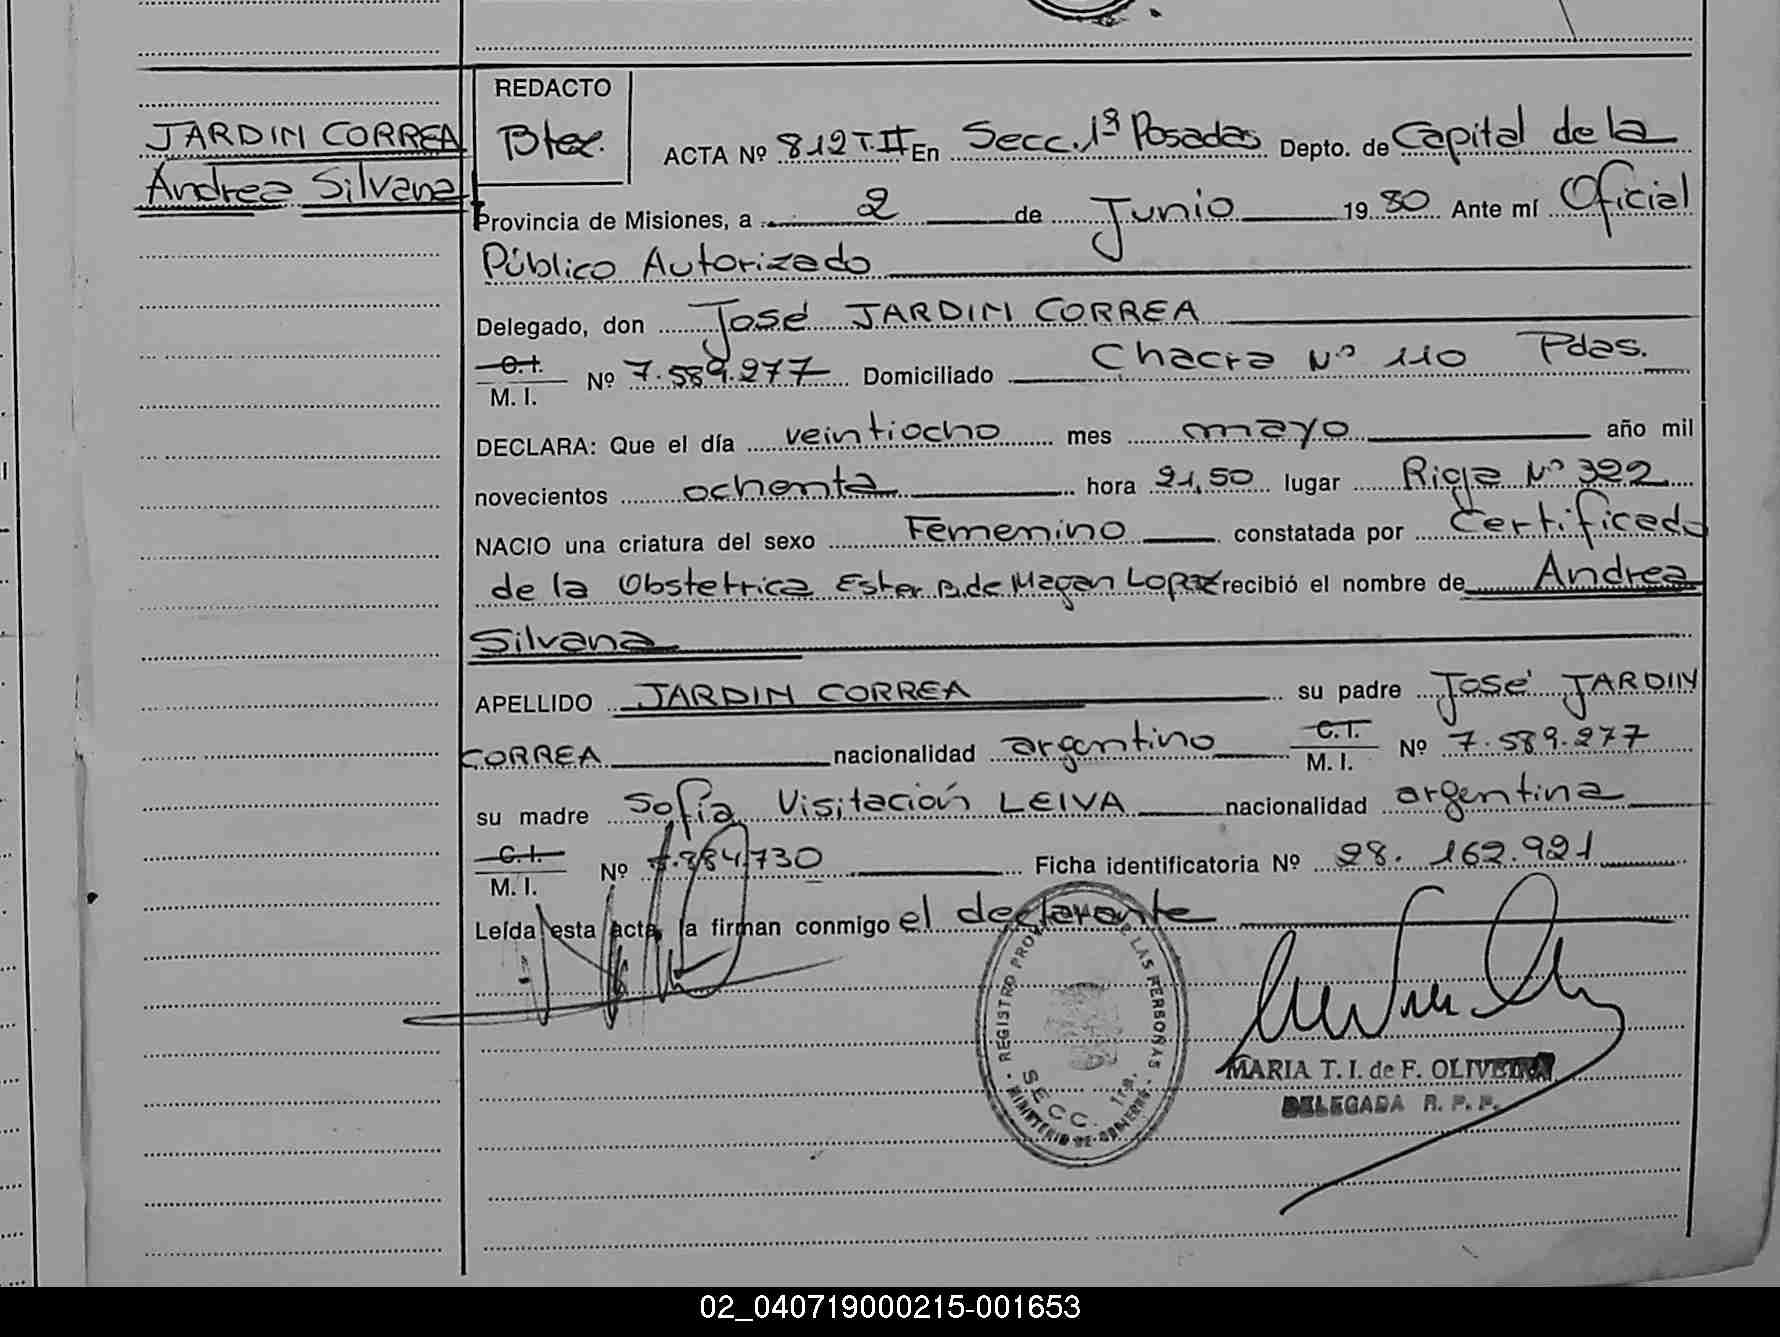 JARDIN CORREA
Andrea Silvana
REDACTO
Btez.
ACTA Nº 812 T. II En Secc. 1ª Posadas Depto. de Capital de la
Provincia de Misiones, a 2 de Junio 19 80 Ante mí Oficial
Público Autorizado
Delegado, don José JARDIN CORREA
C. I.
M. I. Nº 7.589.277 Domiciliado Chacra Nº 110 Pdas.
DECLARA: Que el día veintiocho mes mayo año mil
novecientos ochenta hora 21,50 lugar Rioja Nº 322
NACIO una criatura del sexo Femenino constatada por Certificado
de la Obstetrica Ester B. de Magan Lopez recibió el nombre de Andrea
Silvana
APELLIDO JARDIN CORREA su padre José JARDIN
CORREA nacionalidad argentino C. I.
M. I. Nº 7.589.277
su madre Sofía Visitación LEIVA nacionalidad argentina
C. I.
M. I. Nº 730 Ficha identificatoria Nº 28.162.921
Leída esta acta, la firman conmigo el declarante
REGISTRO PRO DE LAS PERSONAS
SECC. 1ra.
MINISTERIO DE GOBIERNO
MARIA T. I. de F. OLIVEIRA
DELEGADA R. P. P.
02_040719000215-001653